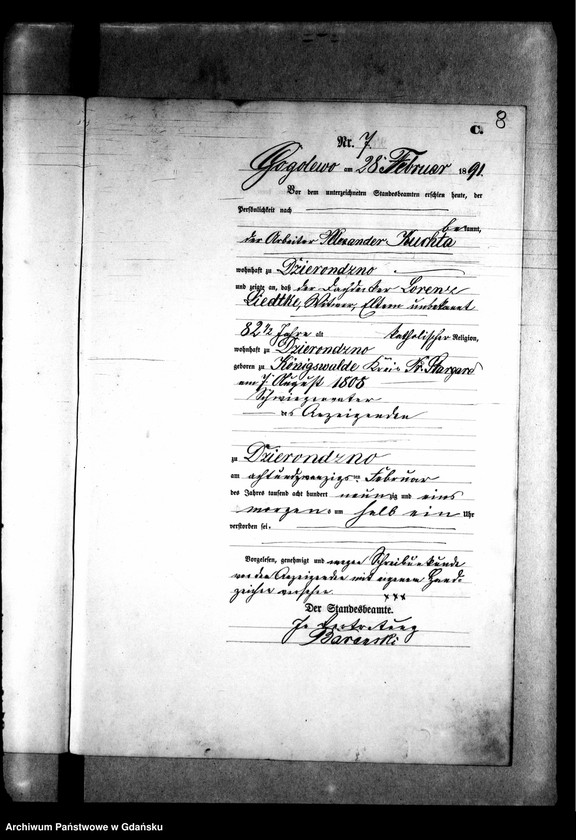 8
C.
Nr. 7.
Gogolewo am 28 Februar 1891.
Vor dem unterzeichneten Standesbeamten erschien heute, der
Persönlichkeit nach
bekannt,
der Arbeiter Alexander Kuchta
wohnhaft zu Dzierondzno
und zeigte an, daß der Dachdecker Lorenz
Liedtke, Witwer, Eltern unbekannt
82½ Jahre alt katholischer Religion,
wohnhaft zu Dzierondzno
geboren zu Königswalde Kreis Pr. Stargard
am 7. August 1808
Schwiegervater
des Anzeigenden
zu Dzierondzno
am achtundzwanzigsten Februar
des Jahres tausend acht hundert neunzig und eins
morgens um halb ein Uhr
verstorben sei.
Vorgelesen, genehmigt und wegen Schreibunkunde
von dem Anzeigenden mit eigenem Hand-
zeichen versehen.
+++
Der Standesbeamte.
In Vertretung
Archiwum Państwowe w Gdańsku